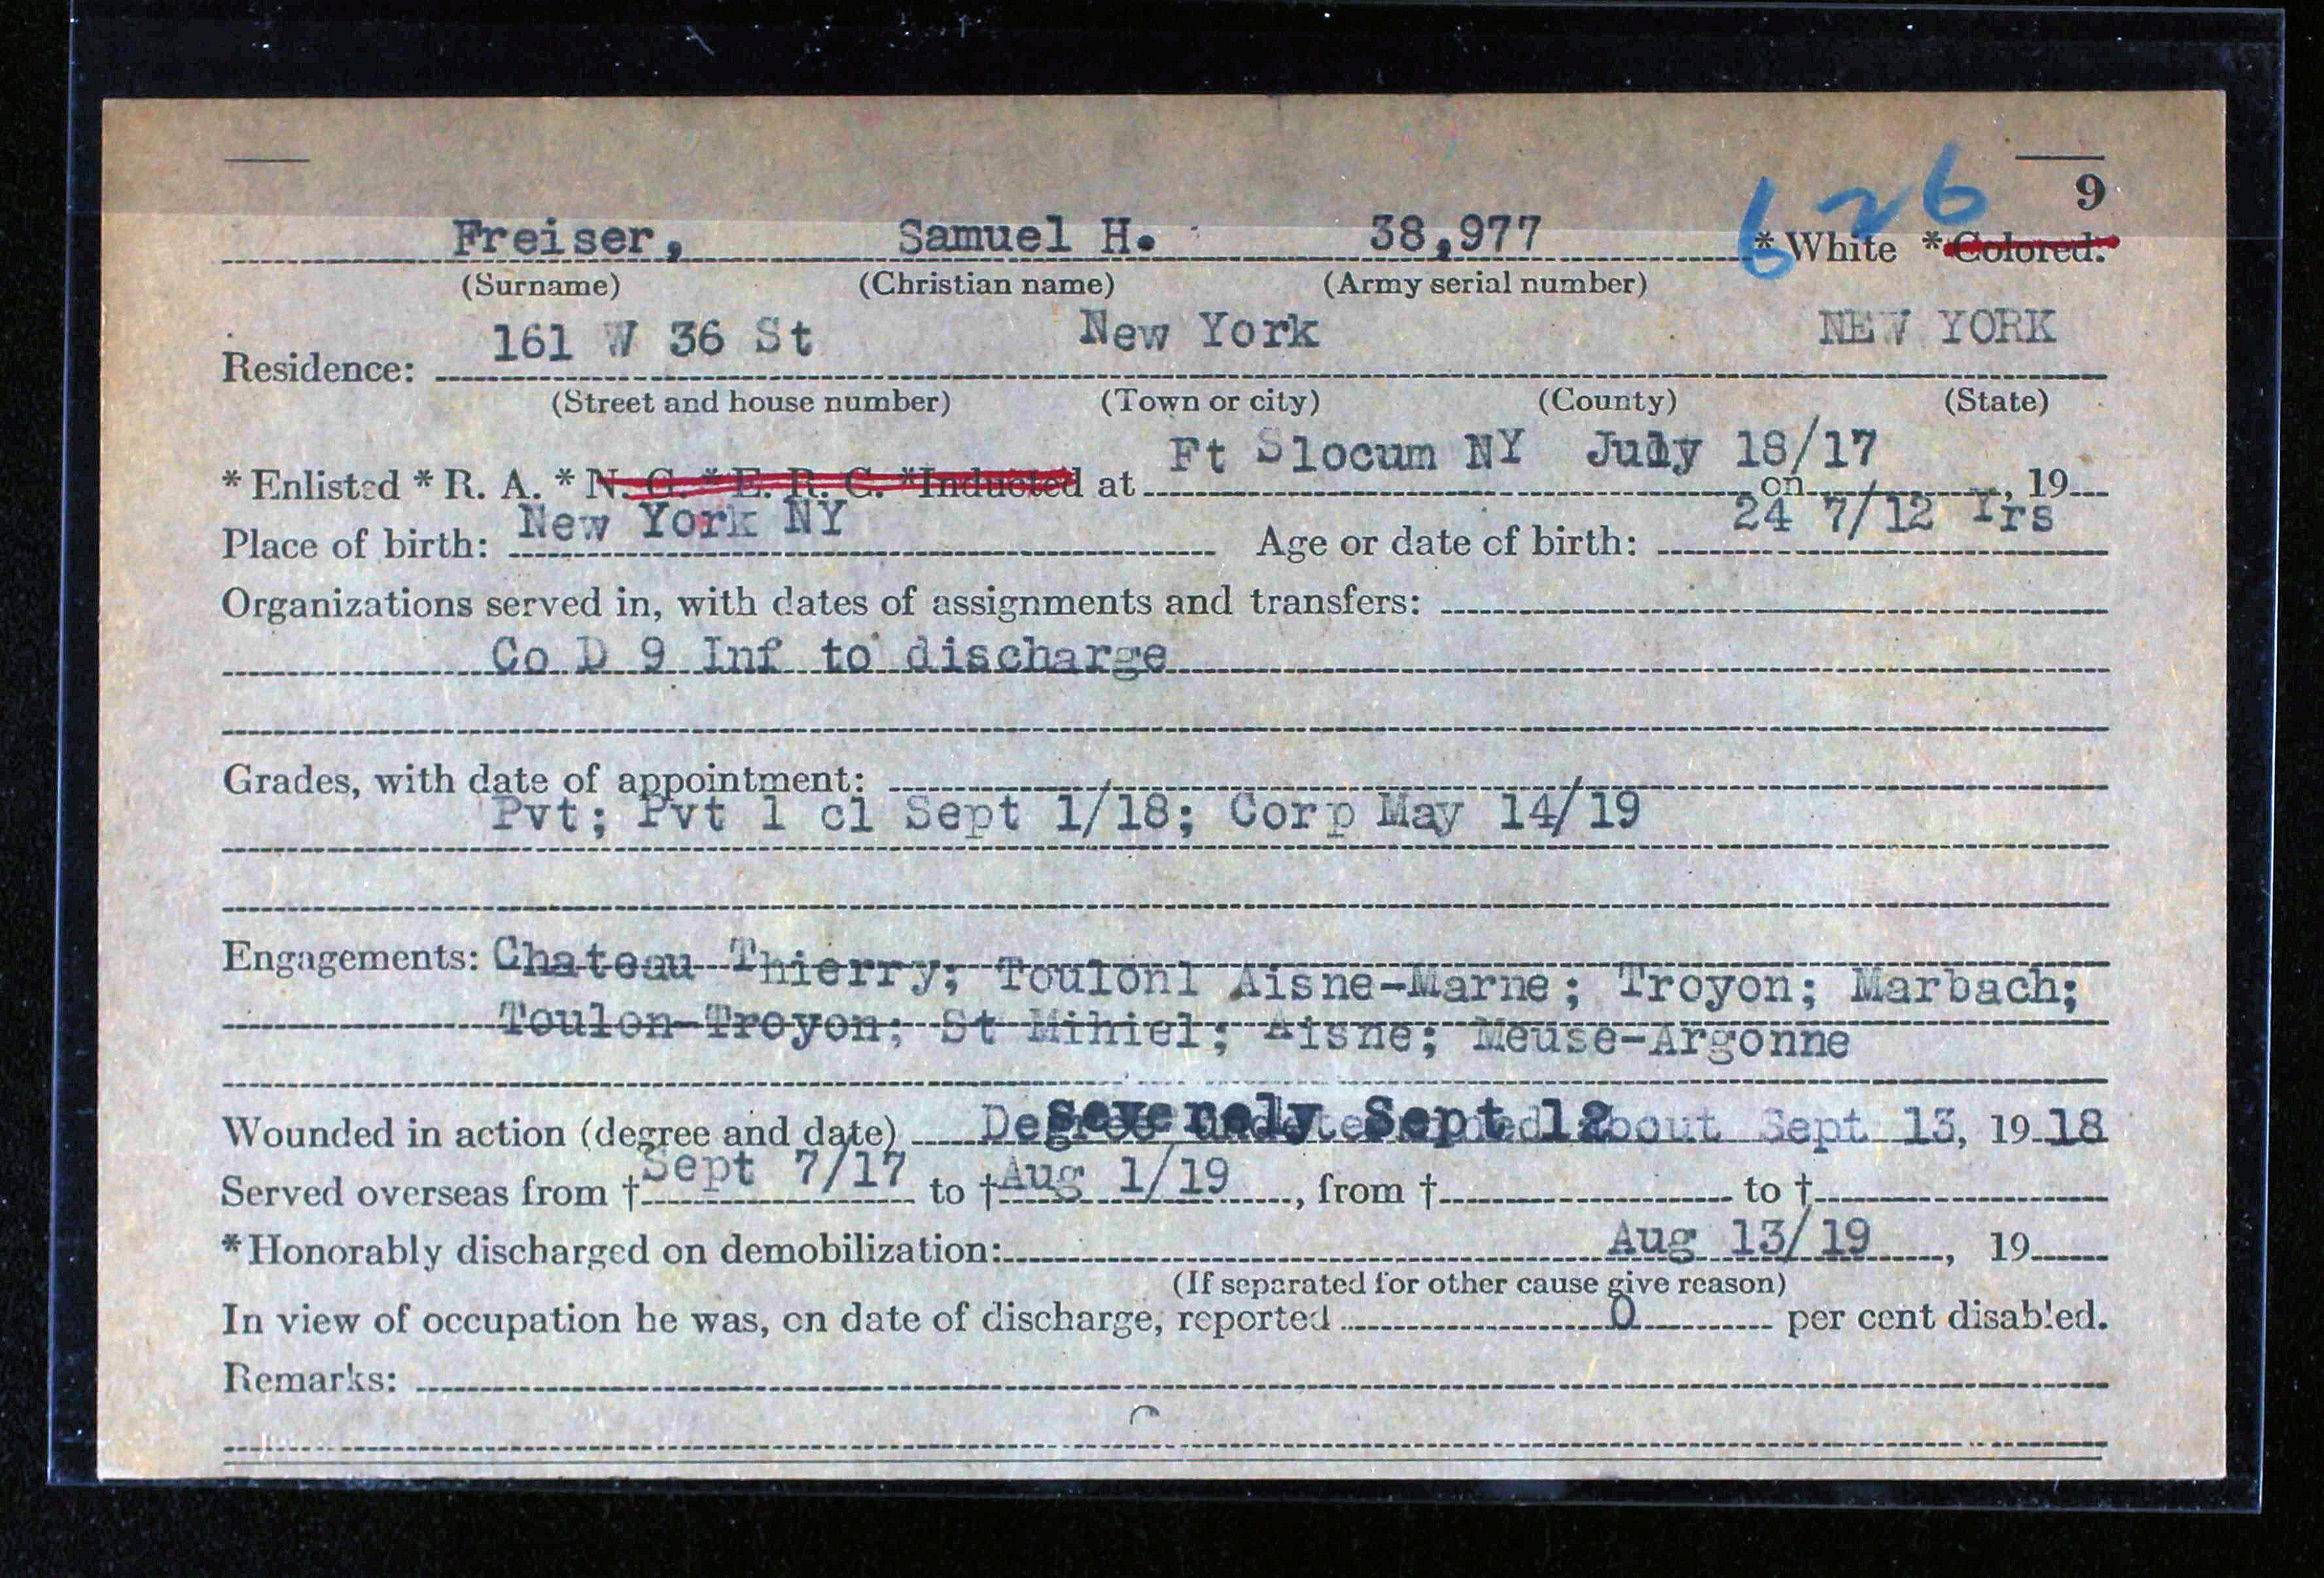 9
626
Freiser, Samuel H. 38,977 * White * Colored.
(Surname) (Christian name) (Army serial number)
161 W 36 St New York NEW YORK
Residence:
(Street and house number) (Town or city) (County) (State)
Ft Slocum NY July 18/17
* Enlisted * R. A. * N. G. * E. R. C. *Inducted at on , 19
Place of birth: New York NY Age or date of birth: 24 7/12 Yrs
Organizations served in, with dates of assignments and transfers:
Co D 9 Inf to discharge
Grades, with date of appointment:
Pvt; Pvt 1 cl Sept 1/18; Corp May 14/19
Engagements: Chateau Thierry; Toulon1 Aisne-Marne; Troyon; Marbach;
Toulon-Troyon; St Mihiel; Aisne; Meuse-Argonne
Wounded in action (degree and date) Severely Sept 12 about Sept 13, 1918
Served overseas from † Sept 7/17 to † Aug 1/19, from † to †
* Honorably discharged on demobilization: Aug 13/19, 19
(If separated for other cause give reason)
In view of occupation he was, on date of discharge, reported 0 per cent disabled.
Remarks: